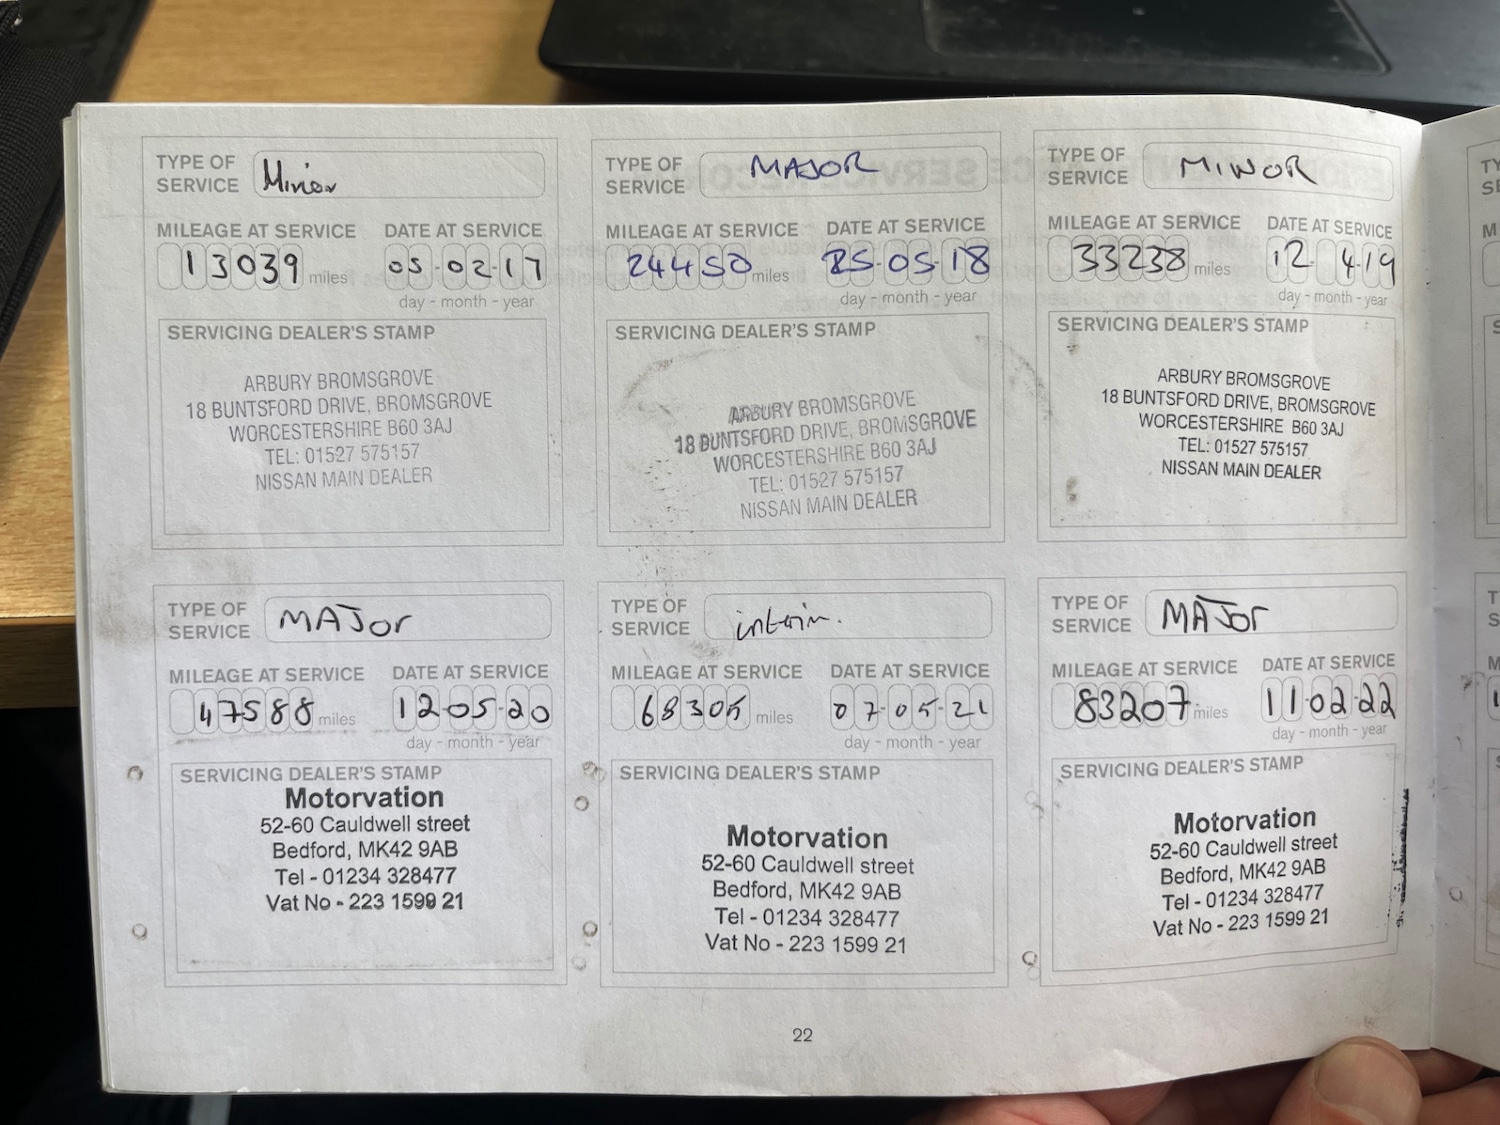 TYPE OF SERVICE Minor
MILEAGE AT SERVICE DATE AT SERVICE
13039 miles 05-02-17
day - month - year
SERVICING DEALER'S STAMP
ARBURY BROMSGROVE
18 BUNTSFORD DRIVE, BROMSGROVE
WORCESTERSHIRE B60 3AJ
TEL: 01527 575157
NISSAN MAIN DEALER
TYPE OF SERVICE MAJOR
MILEAGE AT SERVICE DATE AT SERVICE
24450 miles 25-05-18
day - month - year
SERVICING DEALER'S STAMP
ARBURY BROMSGROVE
18 BUNTSFORD DRIVE, BROMSGROVE
WORCESTERSHIRE B60 3AJ
TEL: 01527 575157
NISSAN MAIN DEALER
TYPE OF SERVICE MINOR
MILEAGE AT SERVICE DATE AT SERVICE
33238 miles 12-4-19
day - month - year
SERVICING DEALER'S STAMP
ARBURY BROMSGROVE
18 BUNTSFORD DRIVE, BROMSGROVE
WORCESTERSHIRE B60 3AJ
TEL: 01527 575157
NISSAN MAIN DEALER
TYPE OF SERVICE MAJor
MILEAGE AT SERVICE DATE AT SERVICE
47588 miles 12-05-20
day - month - year
SERVICING DEALER'S STAMP
Motorvation
52-60 Cauldwell street
Bedford, MK42 9AB
Tel - 01234 328477
Vat No - 223 1599 21
TYPE OF SERVICE interim.
MILEAGE AT SERVICE DATE AT SERVICE
68305 miles 07-05-21
day - month - year
SERVICING DEALER'S STAMP
Motorvation
52-60 Cauldwell street
Bedford, MK42 9AB
Tel - 01234 328477
Vat No - 223 1599 21
TYPE OF SERVICE MAJor
MILEAGE AT SERVICE DATE AT SERVICE
83207 miles 11-02-22
day - month - year
SERVICING DEALER'S STAMP
Motorvation
52-60 Cauldwell street
Bedford, MK42 9AB
Tel - 01234 328477
Vat No - 223 1599 21
22